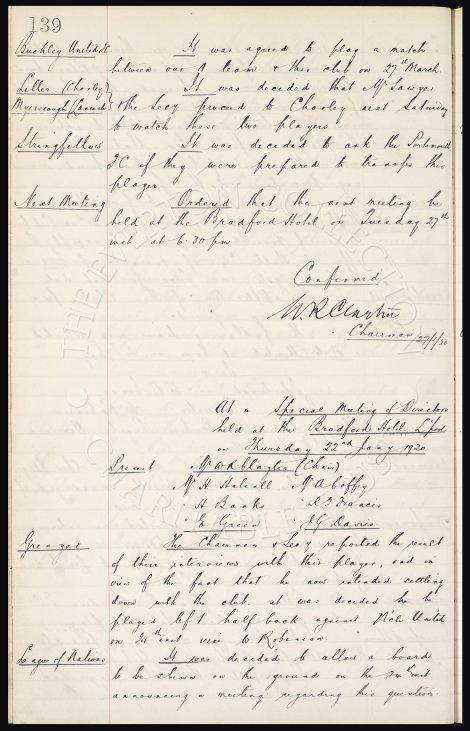 139
Buckley United Jc It was agreed to play a match
between our A team & this club on 27th March.
Letter (Chorley) It was decided that Mr Sawyer
Myerscough (Lancaster) & the Secy proceed to Chorley next Saturday
to watch these two players
Stringfellow It was decided to ask the Portsmouth
FC if they were prepared to transfer this
player
Next Meeting Ordered that the next meeting be
held at the Bradford Hotel, on Tuesday 27th
inst at 6.30 pm
Confirmed
W R Clayton
Chairman 27/1/20
At a Special Meeting of Directors
held at the Bradford Hotel L'pool
on Thursday 22nd Jany 1920
Present Mr W R Clayton (Chair)
Mr H Halsall Mr A Coffey
" H Banks
" E Green
Davies
Grenyer The Chairman & Secy reported the result
of their interviews with this player, and in
view of the fact that he now intended settling
down with the club it was decided he be
played left half back against N'cle United
on 24th inst vice W Robinson.
League of Nations It was decided to allow a board
to be shewn on the ground on the 24th inst
announcing a meeting regarding this question.